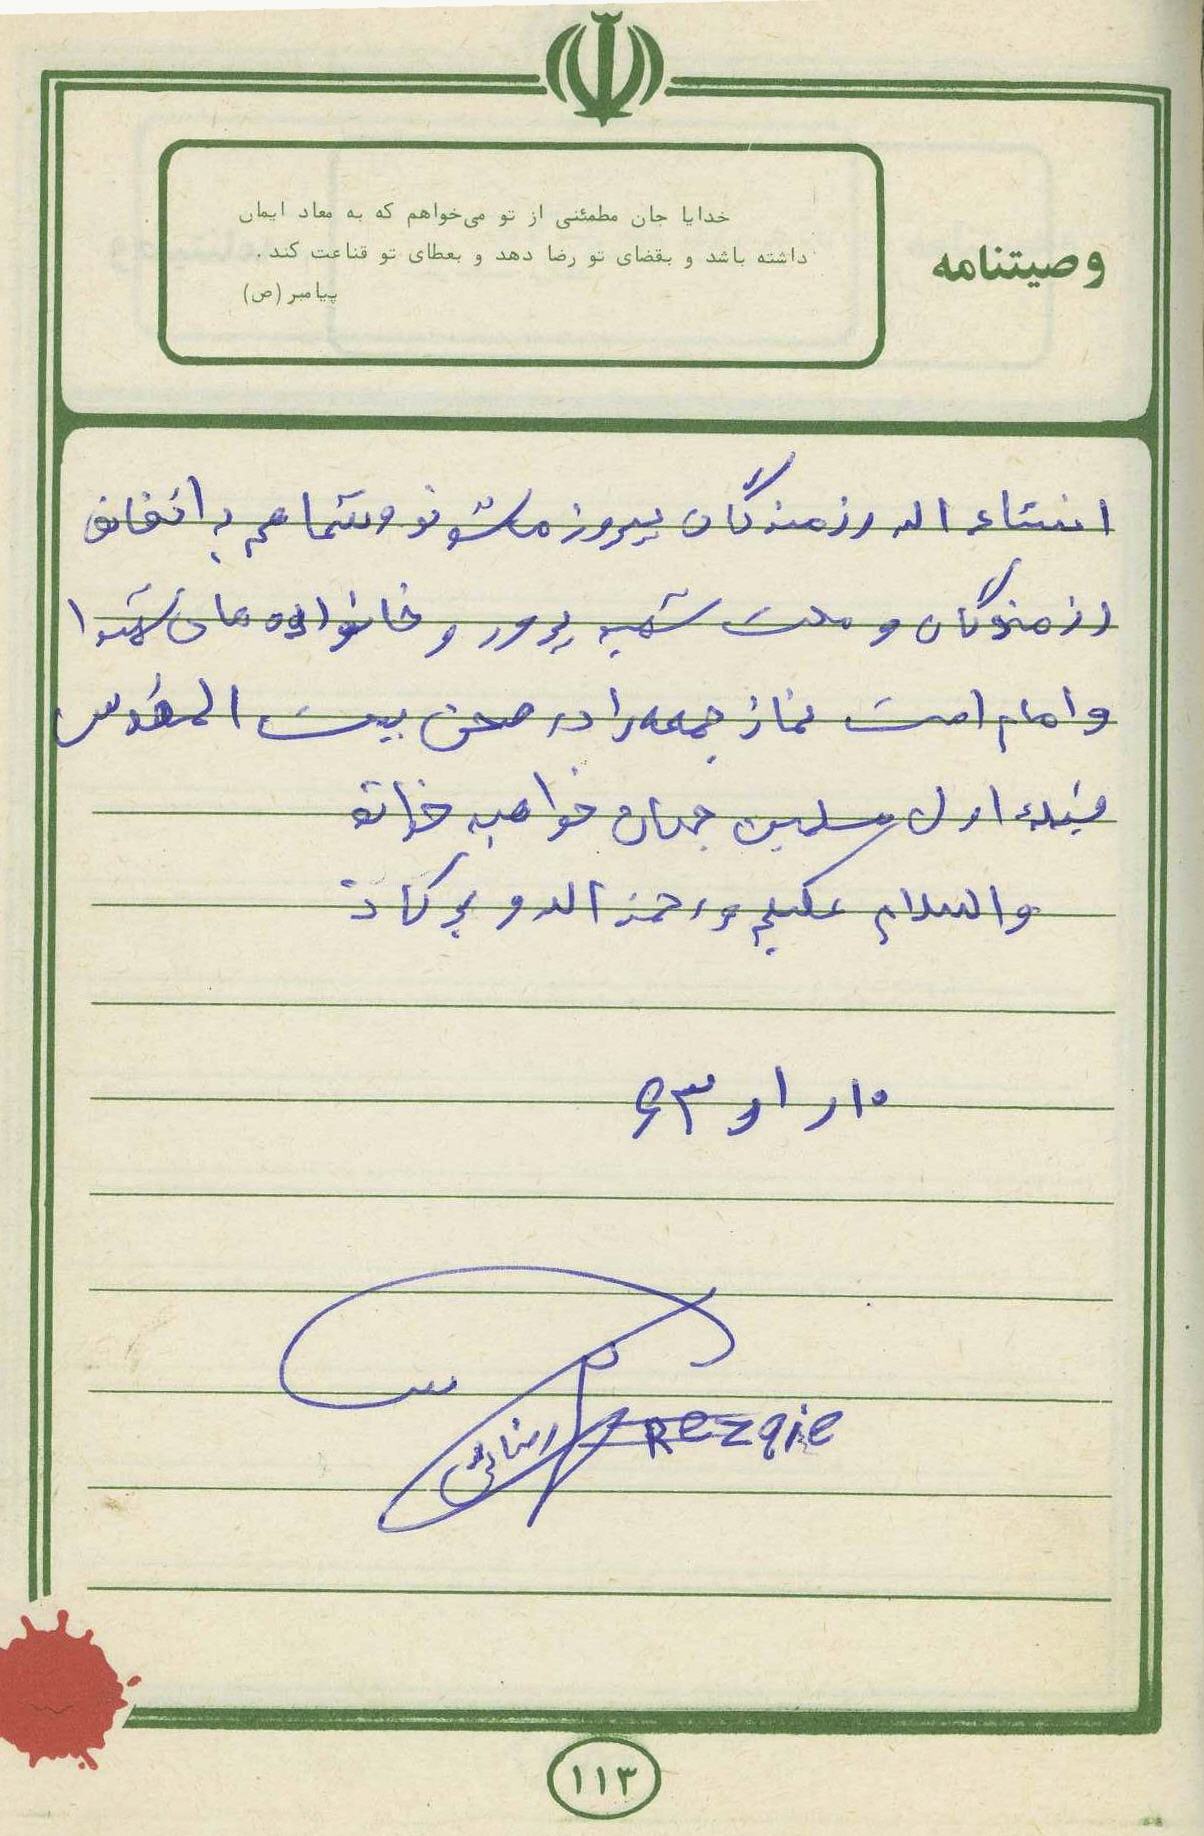 وصیتنامه
خدایا جان مطمئنی از تو می‌خواهم که به معاد ایمان
داشته باشد و بقضای تو رضا دهد و بعطای تو قناعت کند.
پیامبر (ص)
انشاء اله رزمندگان پیروز میشوند و شما هم به اتفاق
رزمندگان و ملت شهید پرور و خانواده های شهدا
و امام امت نماز جمعه را در صحن بیت المقدس
قبله اول مسلمین جهان خواهید خواند
والسلام علیکم و رحمة اله و برکاته
۱۰ر ۱ر ۶۳
Rezqie
۱۱۳